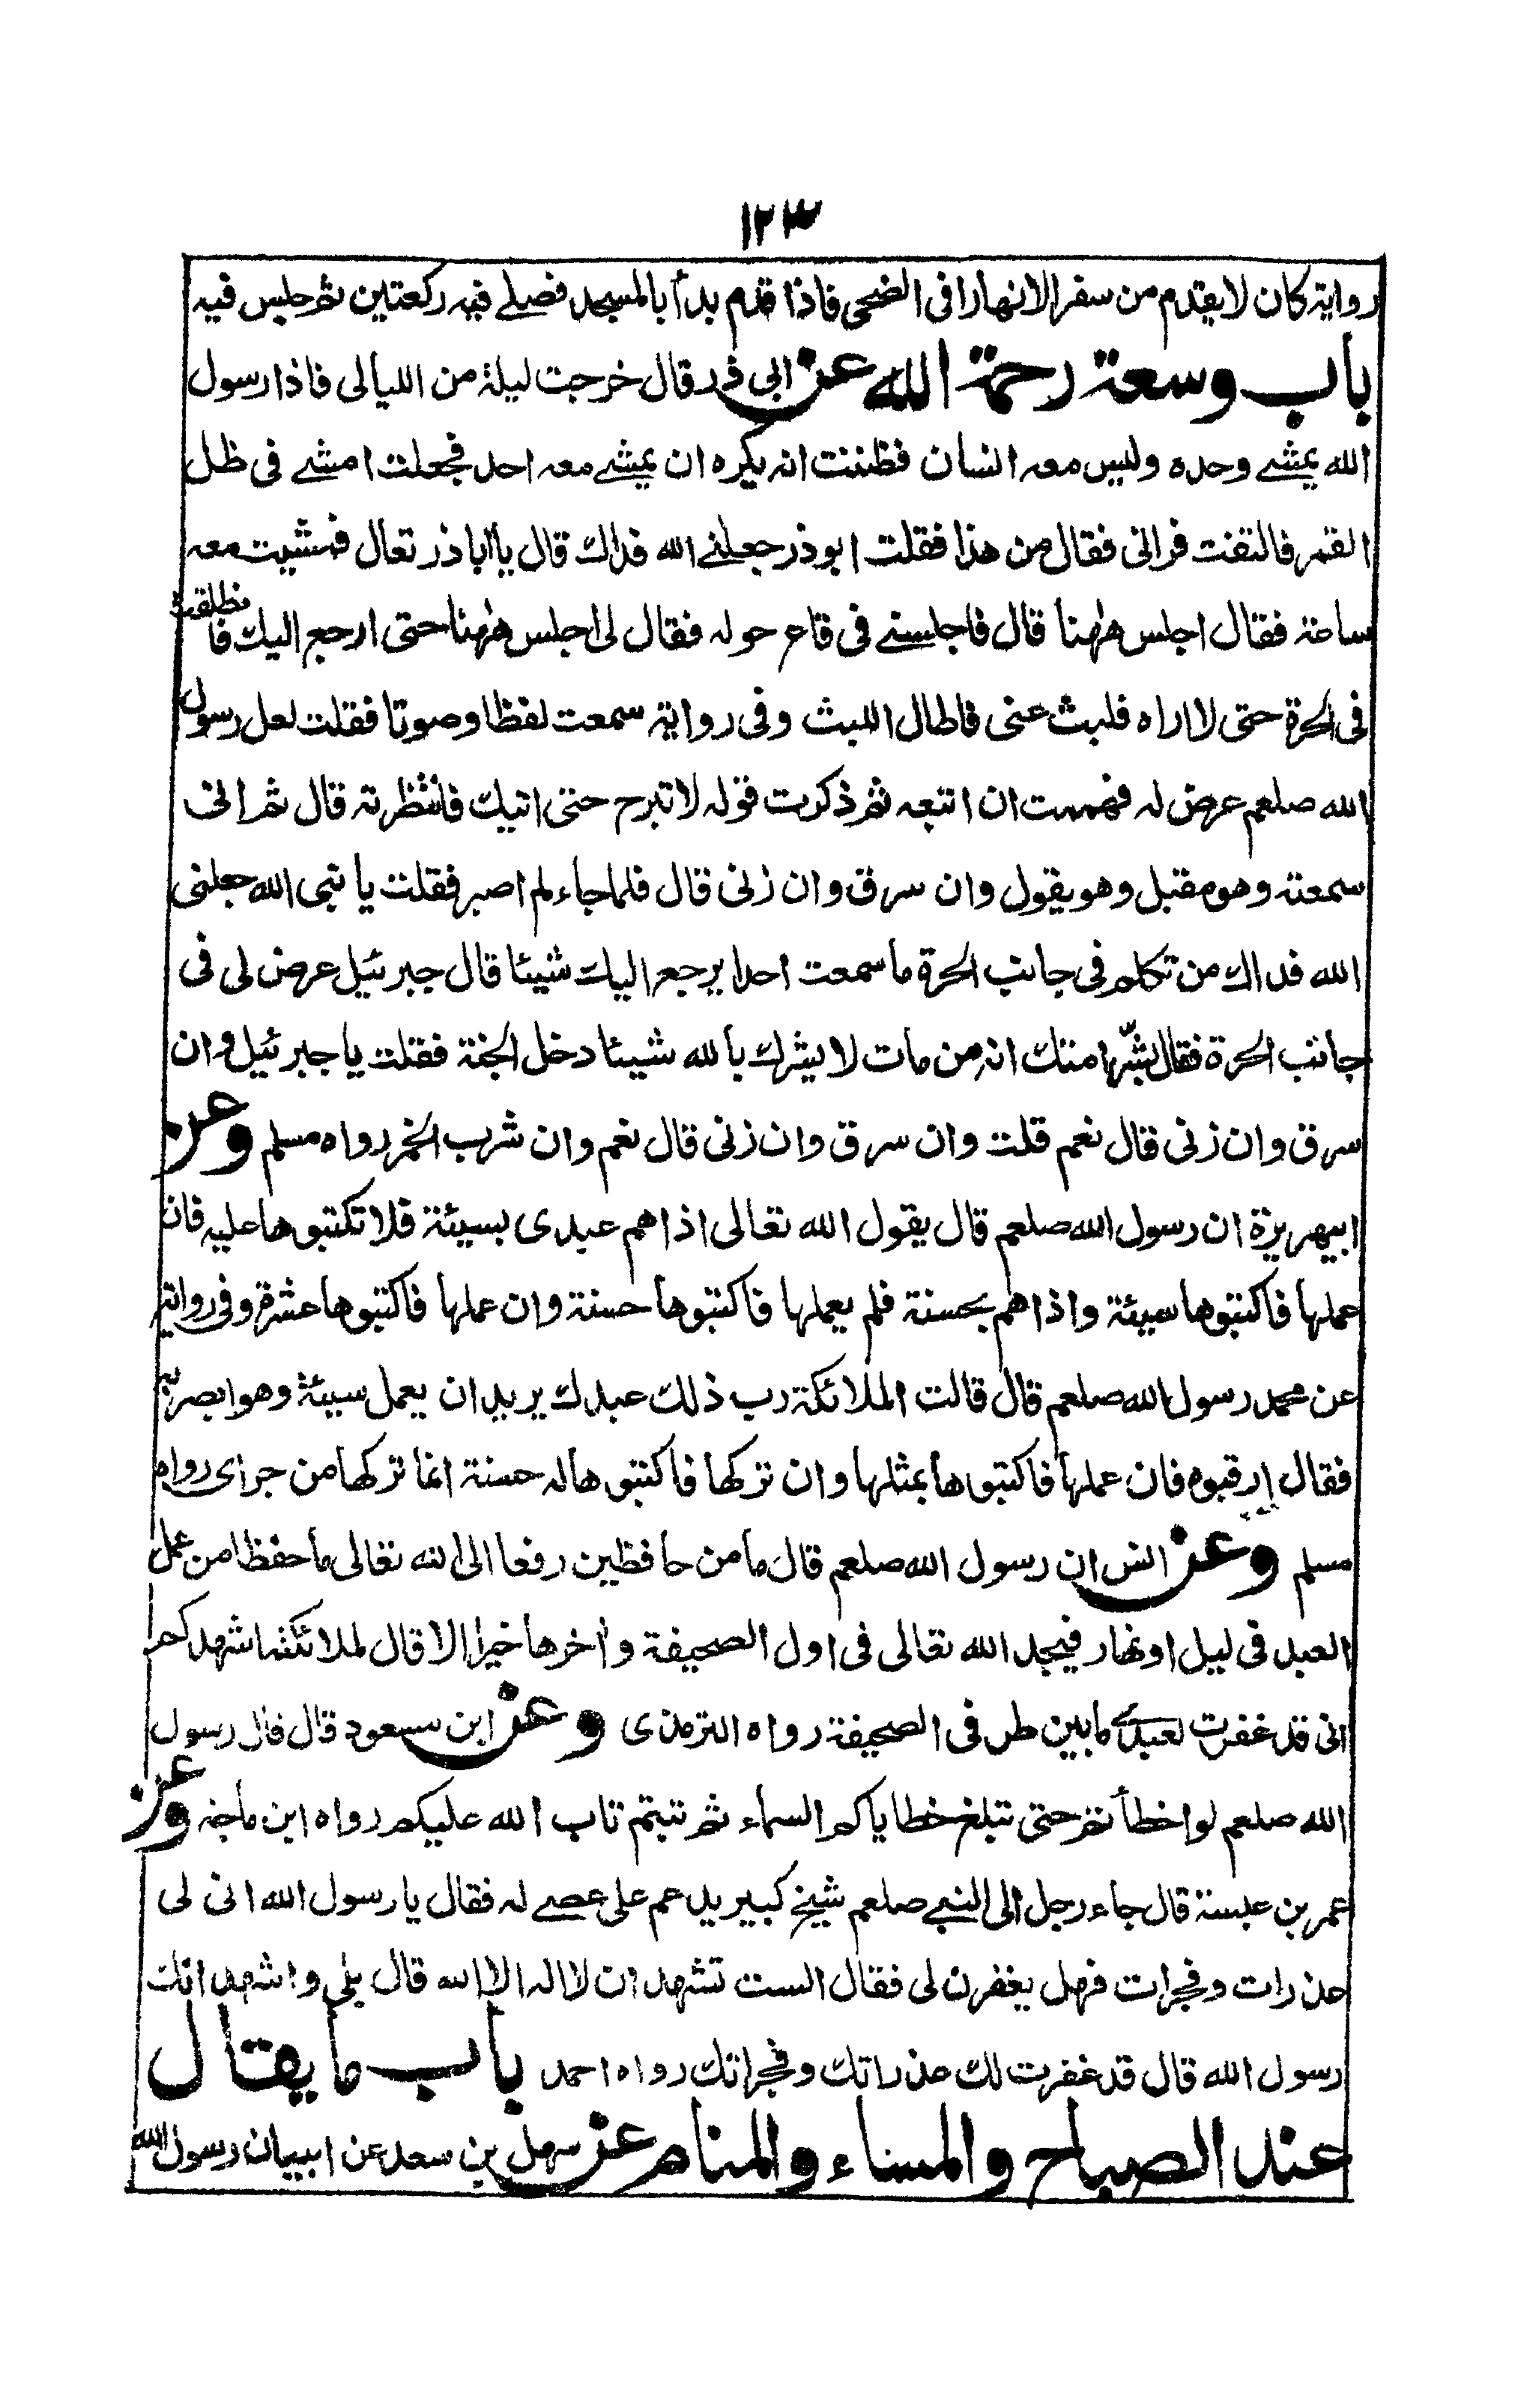 ١٢٣
رواية كان لا يقدم من سفر الا نهارا فى الضحى فاذا قدم بدأ بالمسجد فصلے فيه ركعتين ثم جلس فيه
باب وسعة رحمة الله عن ابى ذر قال خرجت ليلة من الليالى فاذا رسول
الله يمشے وحده وليس معه انسان فظننت انه يكره ان يمشے معه احد فجعلت امشے فى ظل
القمر فالتفت فرانى فقال من هذا فقلت ابو ذر جعلنے الله فداك قال يا ابا ذر تعال فمشيت معه
ساعة فقال اجلس هٰهنا قال فاجلسنے فى قاع حوله فقال لى اجلس هٰهنا حتى ارجع اليك فانطلقت
فى الحرة حتى لا اراه فلبث عنى فاطال اللبث وفى رواية سمعت لفظا وصوتا فقلت لعل رسول
الله صلعم عرض له فهممت ان اتبعه ثم ذكرت قوله لا تبرح حتى اتيك فانتظرته قال ثم انى
سمعته وهو مقبل وهو يقول وان سرق وان زنى قال فلما جاء لم اصبر فقلت يا نبى الله جعلنى
الله فداك من تكلم فى جانب الحرة ما سمعت احدا يرجع اليك شيئا قال جبرئيل عرض لى فى
جانب الحرة فقال بشّر امتك انه من مات لا يشرك بالله شيئا دخل الجنة فقلت يا جبرئيل وان
سرق وان زنى قال نعم قلت وان سرق وان زنى قال نعم وان شرب الخمر رواه مسلم وعن
ابيهريرة ان رسول الله صلعم قال يقول الله تعالى اذا هم عبدى بسيئة فلا تكتبوها عليه فان
عملها فاكتبوها سيئة واذا هم بحسنة فلم يعملها فاكتبوها حسنة وان عملها فاكتبوها عشرة وفى رواية
عن محمد رسول الله صلعم قال قالت الملائكة رب ذلك عبدك يريد ان يعمل سيئة وهو ابصر به
فقال ارقبوه فان عملها فاكتبوها بمثلها وان تركها فاكتبوها له حسنة انما تركها من جراى رواه
مسلم وعن انس ان رسول الله صلعم قال ما من حافظين رفعا الى الله تعالى ما حفظا من عمل
العبد فى ليل او نهار فيجد الله تعالى فى اول الصحيفة واخرها خيرا الا قال لملائكته اشهدكم
انى قد غفرت لعبدے ما بين طر فى الصحيفة رواه الترمذى وعن ابن مسعود قال قال رسول
الله صلعم لو اخطأتم حتى تبلغ خطاياكم السماء ثم تبتم تاب الله عليكم رواه ابن ماجة وعن
عمر بن عبسة قال جاء رجل الى النبے صلعم شيخ كبير يدعم على عصے له فقال يا رسول الله انى لى
غدرات وفجرات فهل يغفرن لى فقال الست تشهد ان لا اله الا الله قال بلى واشهد انك
رسول الله قال قد غفرت لك غدراتك وفجراتك رواه احمد باب ما يقال
عند الصباح والمساء والمنام عن سهل بن سعد عن ابيه ان رسول الله